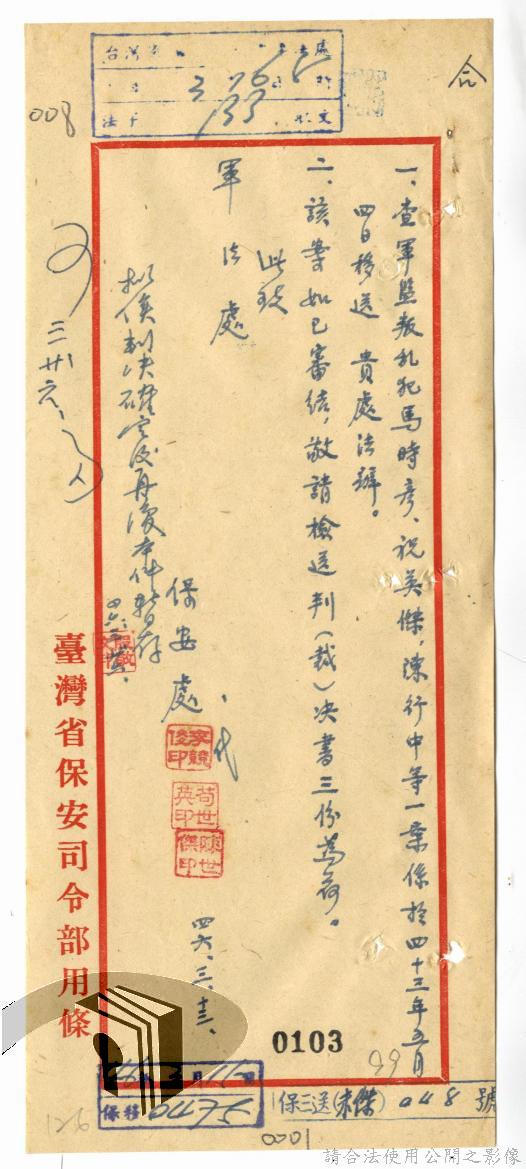 一、查軍監叛乱犯馬時彥、祝英傑、陳行中等一案係於四十三年五月
四日移送　貴處法辦。
二、該等如已審結，敬請檢送判（裁）决書三份為荷。
此致
軍法處
保安處
代
李競俊印
荀世英印
陳世傑印
四六、三、十三、
擬俟判决確定後再復本件暫存
臺灣省保安司令部用條
008
0103
保三送(未傑)048號
0001
126
99
請合法使用公開之影像